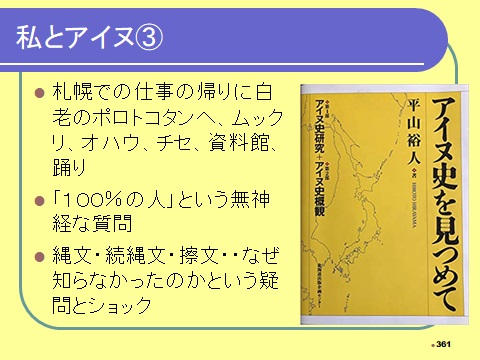 私とアイヌ③
札幌での仕事の帰りに白
老のポロトコタンへ、ムック
リ、オハウ、チセ、資料館、
踊り
「１００％の人」という無神
経な質問
縄文・続縄文・擦文・・なぜ
知らなかったのかという疑
問とショック
アイヌ史を見つめて
平山裕人
HIROTO HIRAYAMA
第1部
アイヌ史研究+
第2部
アイヌ史概観
北海道出版企画センター
361